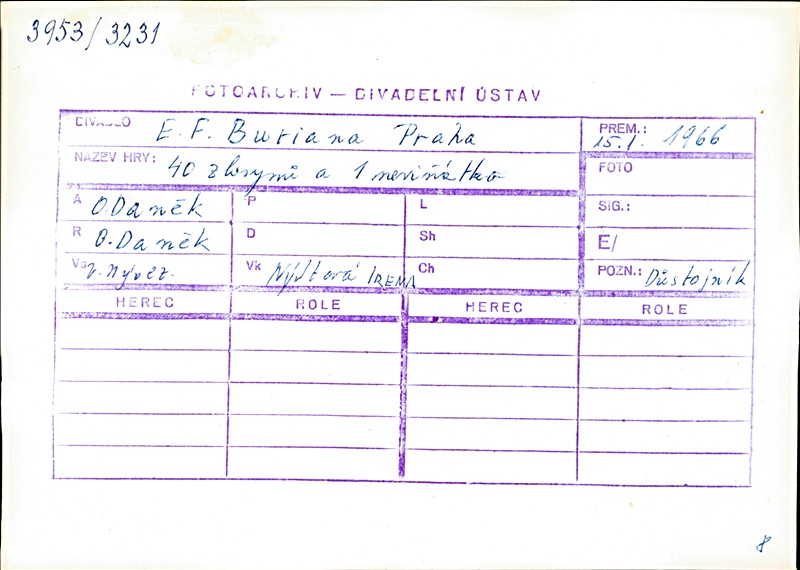 3953/3231
FOTOARCHIV — DIVADELNÍ ÚSTAV
DIVADLO E. F. Buriana Praha PREM.: 15.1. 1966
NÁZEV HRY: 40 zlosynů a 1 neviňátko FOTO
A O. Daněk P L SIG.:
R O. Daněk D Sh E/
Vs V. Nývlt Vk Nývltová IRENA Ch POZN.: Důstojník
HEREC ROLE HEREC ROLE
8